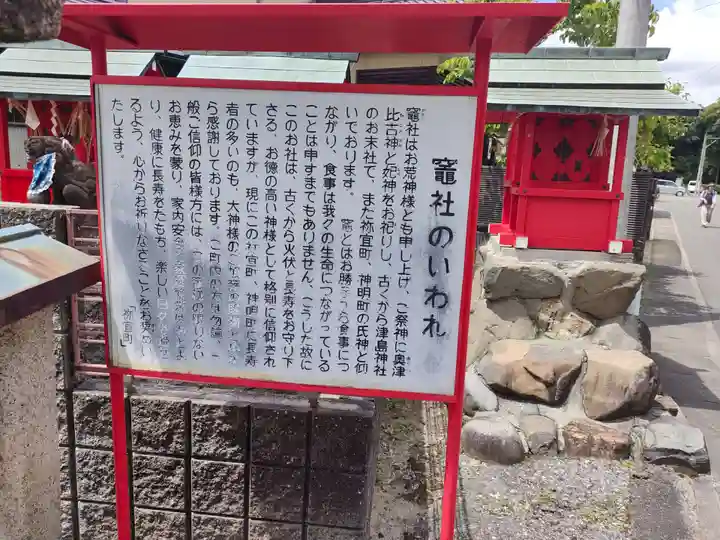 竈社のいわれ
竈社はお荒神様とも申し上げ、ご祭神に奥津
比古神と妃神をお祀りし、古くから津島神社
のお末社で、また祢宜町、神明町の氏神と仰
いでおります。 竈とはお勝 食事につ
ながり、食事は我々の生命につながっている
ことは申すまでもありません、こうした故に
このお社は、古くから火伏と長寿をお守り下
さる、お徳の高い神様として格別に信仰され
ていますが、現にこの祢宜町、神明町に長寿
者の多いのも、大神様の
ら感謝しております。
般ご信仰の皆様方には、 ない
お恵みを蒙り、家内安全
り、健康に長寿をたもち、楽しい日々
るよう、心からお祈り
たします。
「祢宜町」